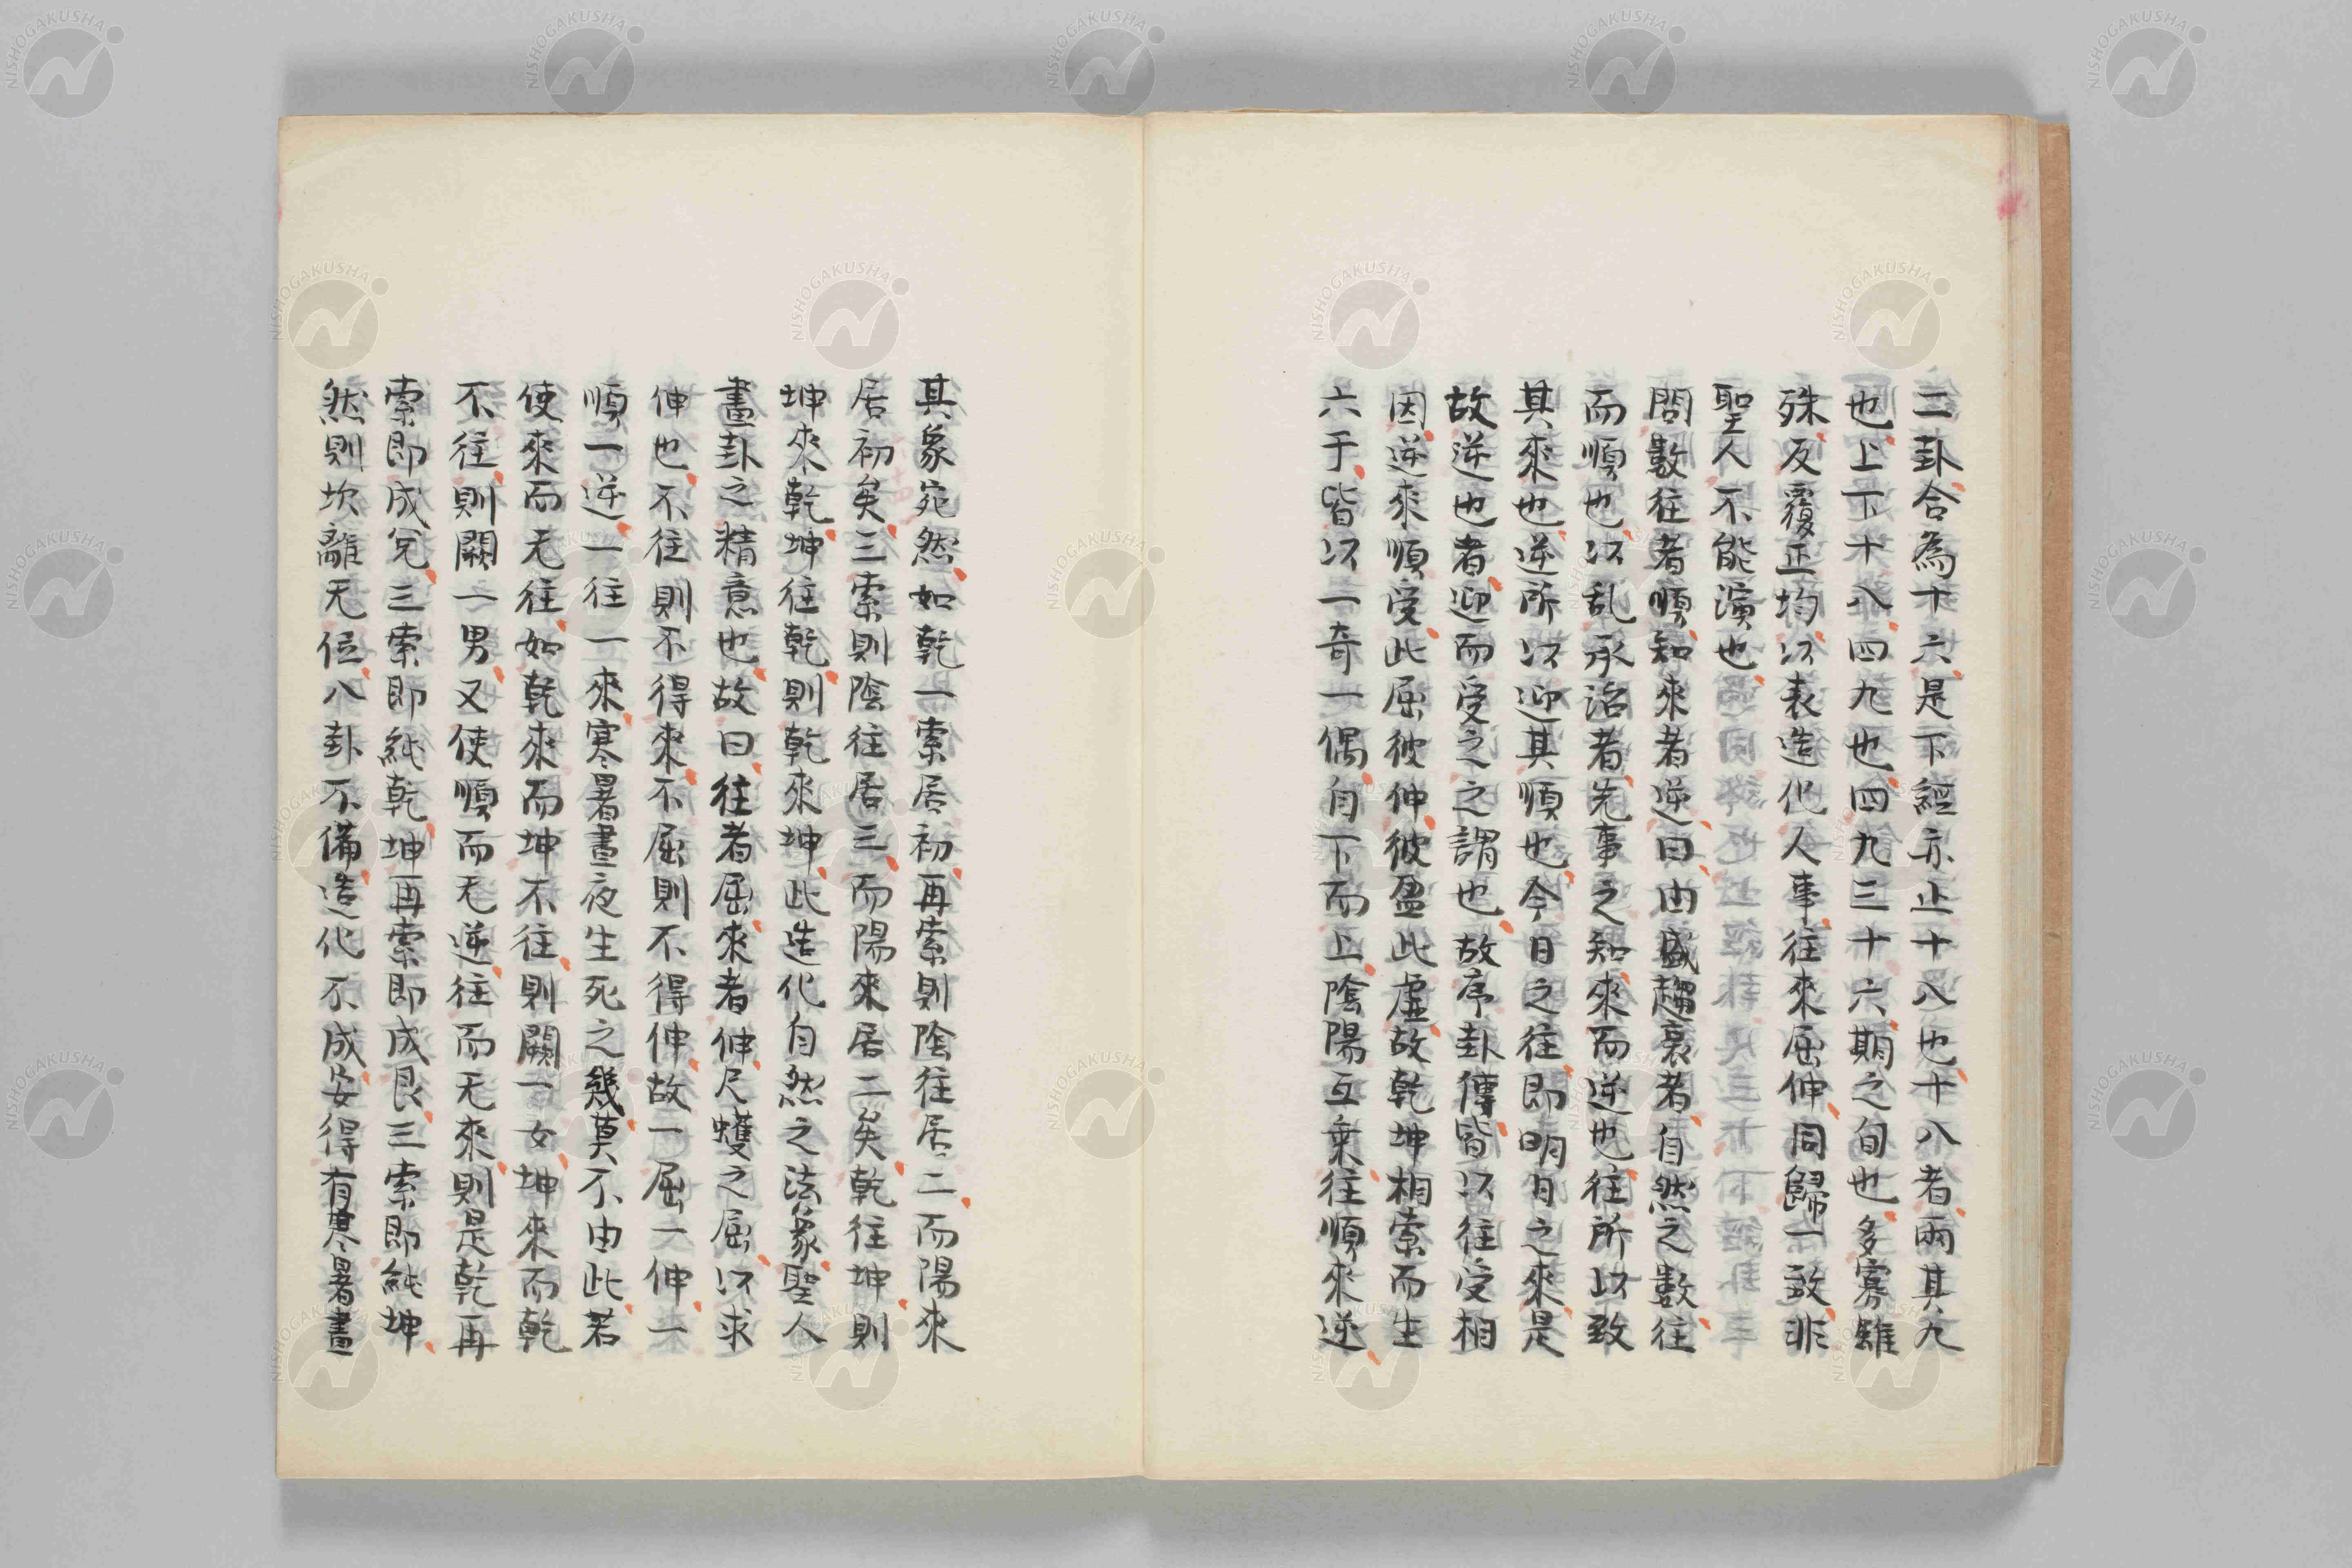 二卦合為十六是下經亦止十八也十八者兩其九
也上下十八四九也四九三十六期之旬也多寡雖
殊反覆正均以表造化人事往來屈伸同歸一致非
聖人不能演也
問數往者順知來者逆曰由盛趨衰者自然之數往
而順也以乱承治者先事之知來而逆也往所以致
其來也逆所以迎其順也今日之往即明日之來是
故逆也者迎而受之之謂也故序卦傳皆以往受相
因逆來順受此屈彼伸彼盈此虛故乾坤相索而生
六子皆以一奇一偶自下而上陰陽互乗往順來逆
其象宛然如乾一索居初再索則陰往居二而陽來
居初矣三索則陰往居三而陽來居二矣乾往坤則
坤來乾坤往乾則乾來坤此造化自然之法象聖人
畫卦之精意也故曰往者屈來者伸尺蠖之屈以求
伸也不往則不得來不屈則不得伸故一屈一伸一
順一逆一往一來寒暑晝夜生死之幾莫不由此若
使來而无往如乾來而坤不往則闕一女坤來而乾
不往則闕一男又使順而无逆往而无來則是乾再
索即成兌三索即純乾坤再索即成艮三索即純坤
然則坎離无位八卦不備造化不成安得有寒暑晝
NISHOGAKUSHA